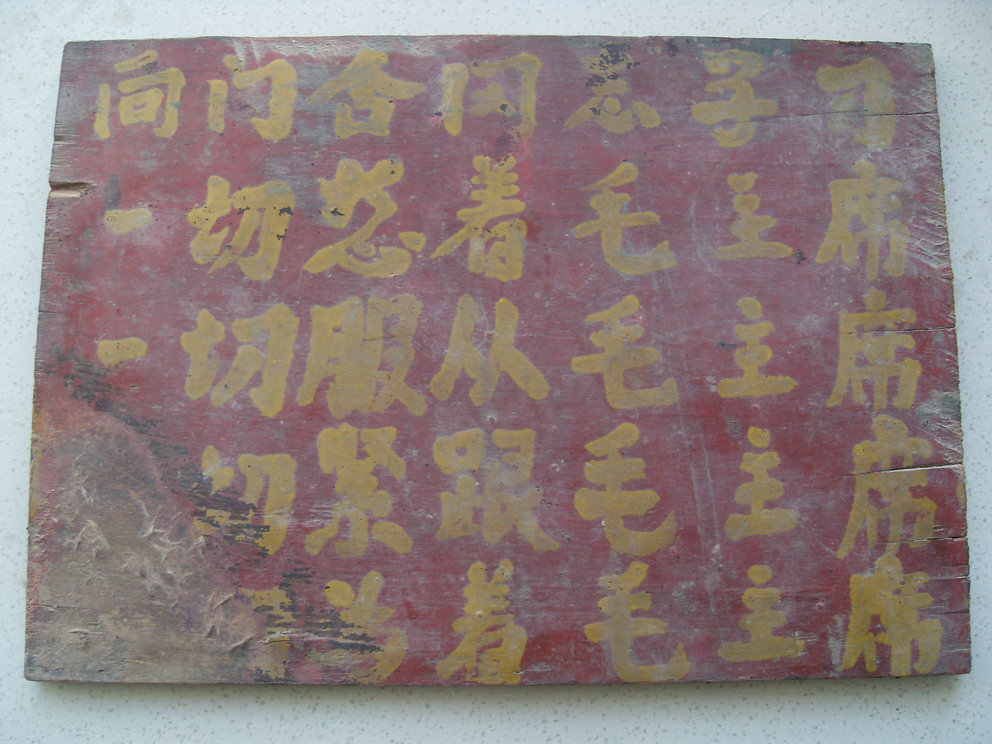 向门合同志学习
一切想着毛主席
一切服从毛主席
切紧跟毛主席
为着毛主席